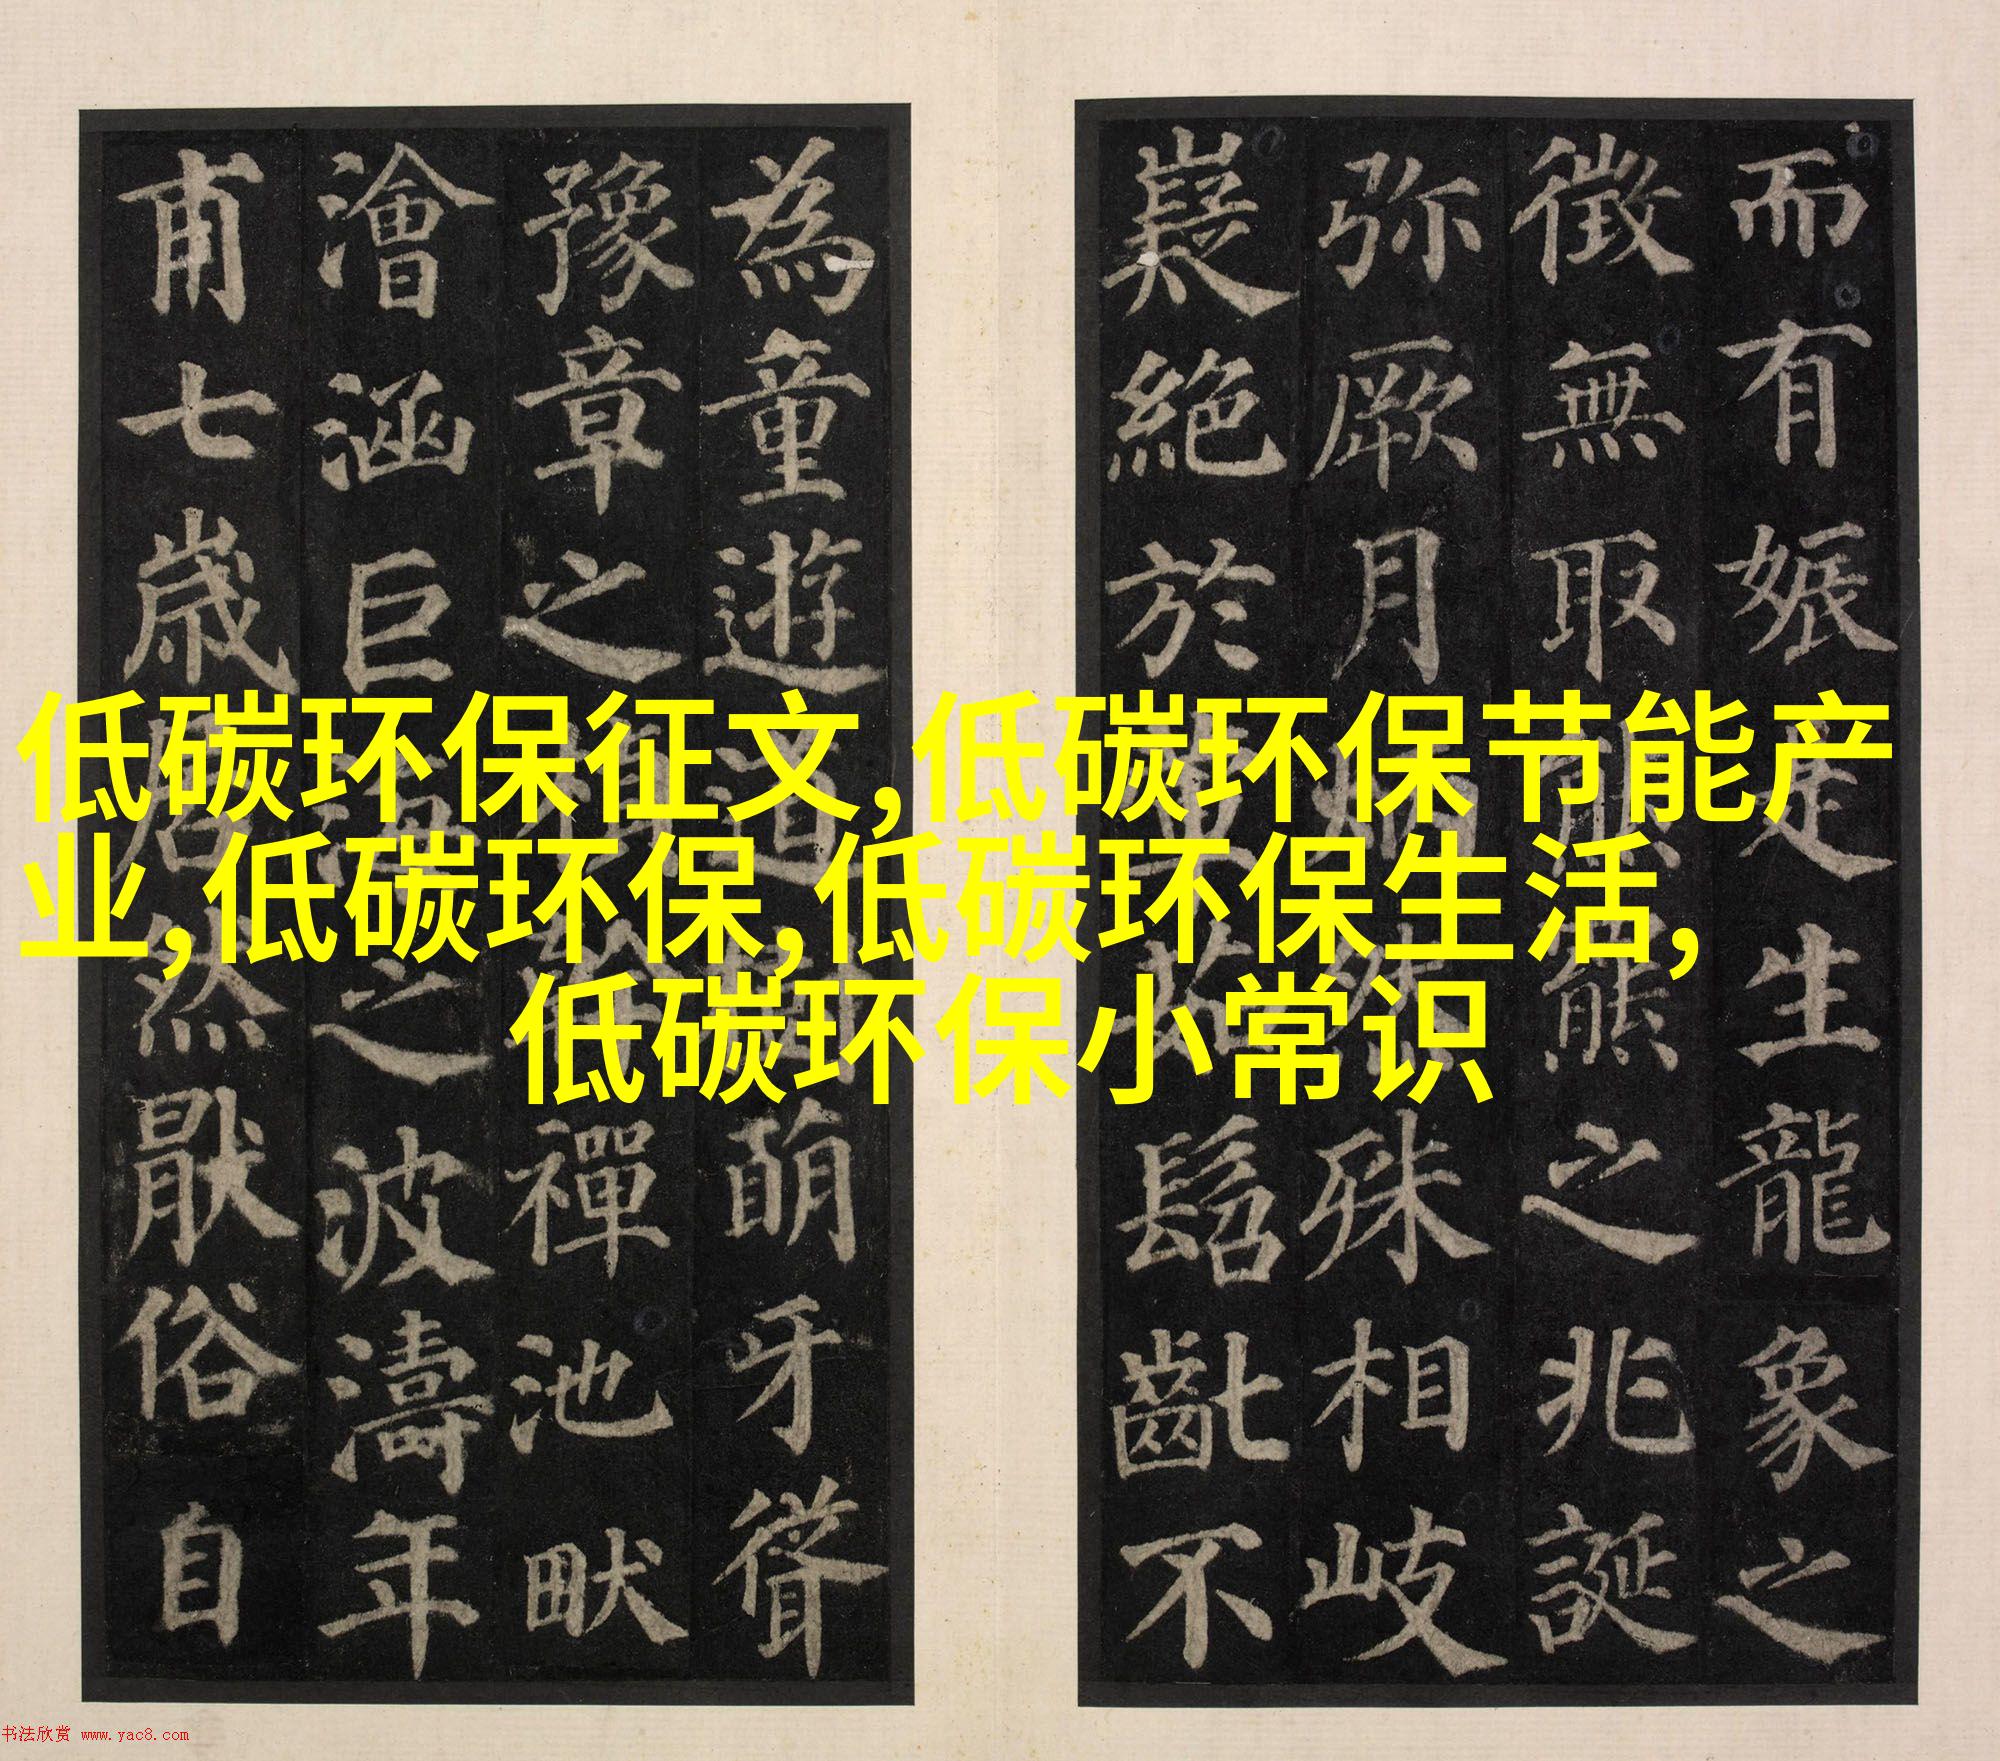 而有娠是生龍象之
徵無取熊羆之兆誕
弥厥月炳然殊相岐
嶷絶於葷茹髫齔不
為童遊道樹萌牙聳
豫章之楨幹禪池畎
澮涵巨海之波濤年
甫七歲居然猒俗自
低碳环保征文,低碳环保节能产
业,低碳环保,低碳环保生活,
低碳环保小常识
书法欣赏 www.yac8.com